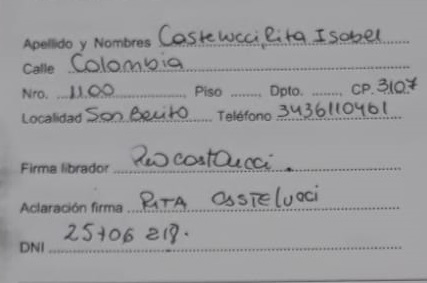 Apellido y Nombres Castelucci, Rita Isabel
Calle Colombia
Nro. 1100 Piso Dpto. CP. 3107
Localidad San Benito Teléfono 3436110461
Firma librador
Aclaración firma RITA
DNI